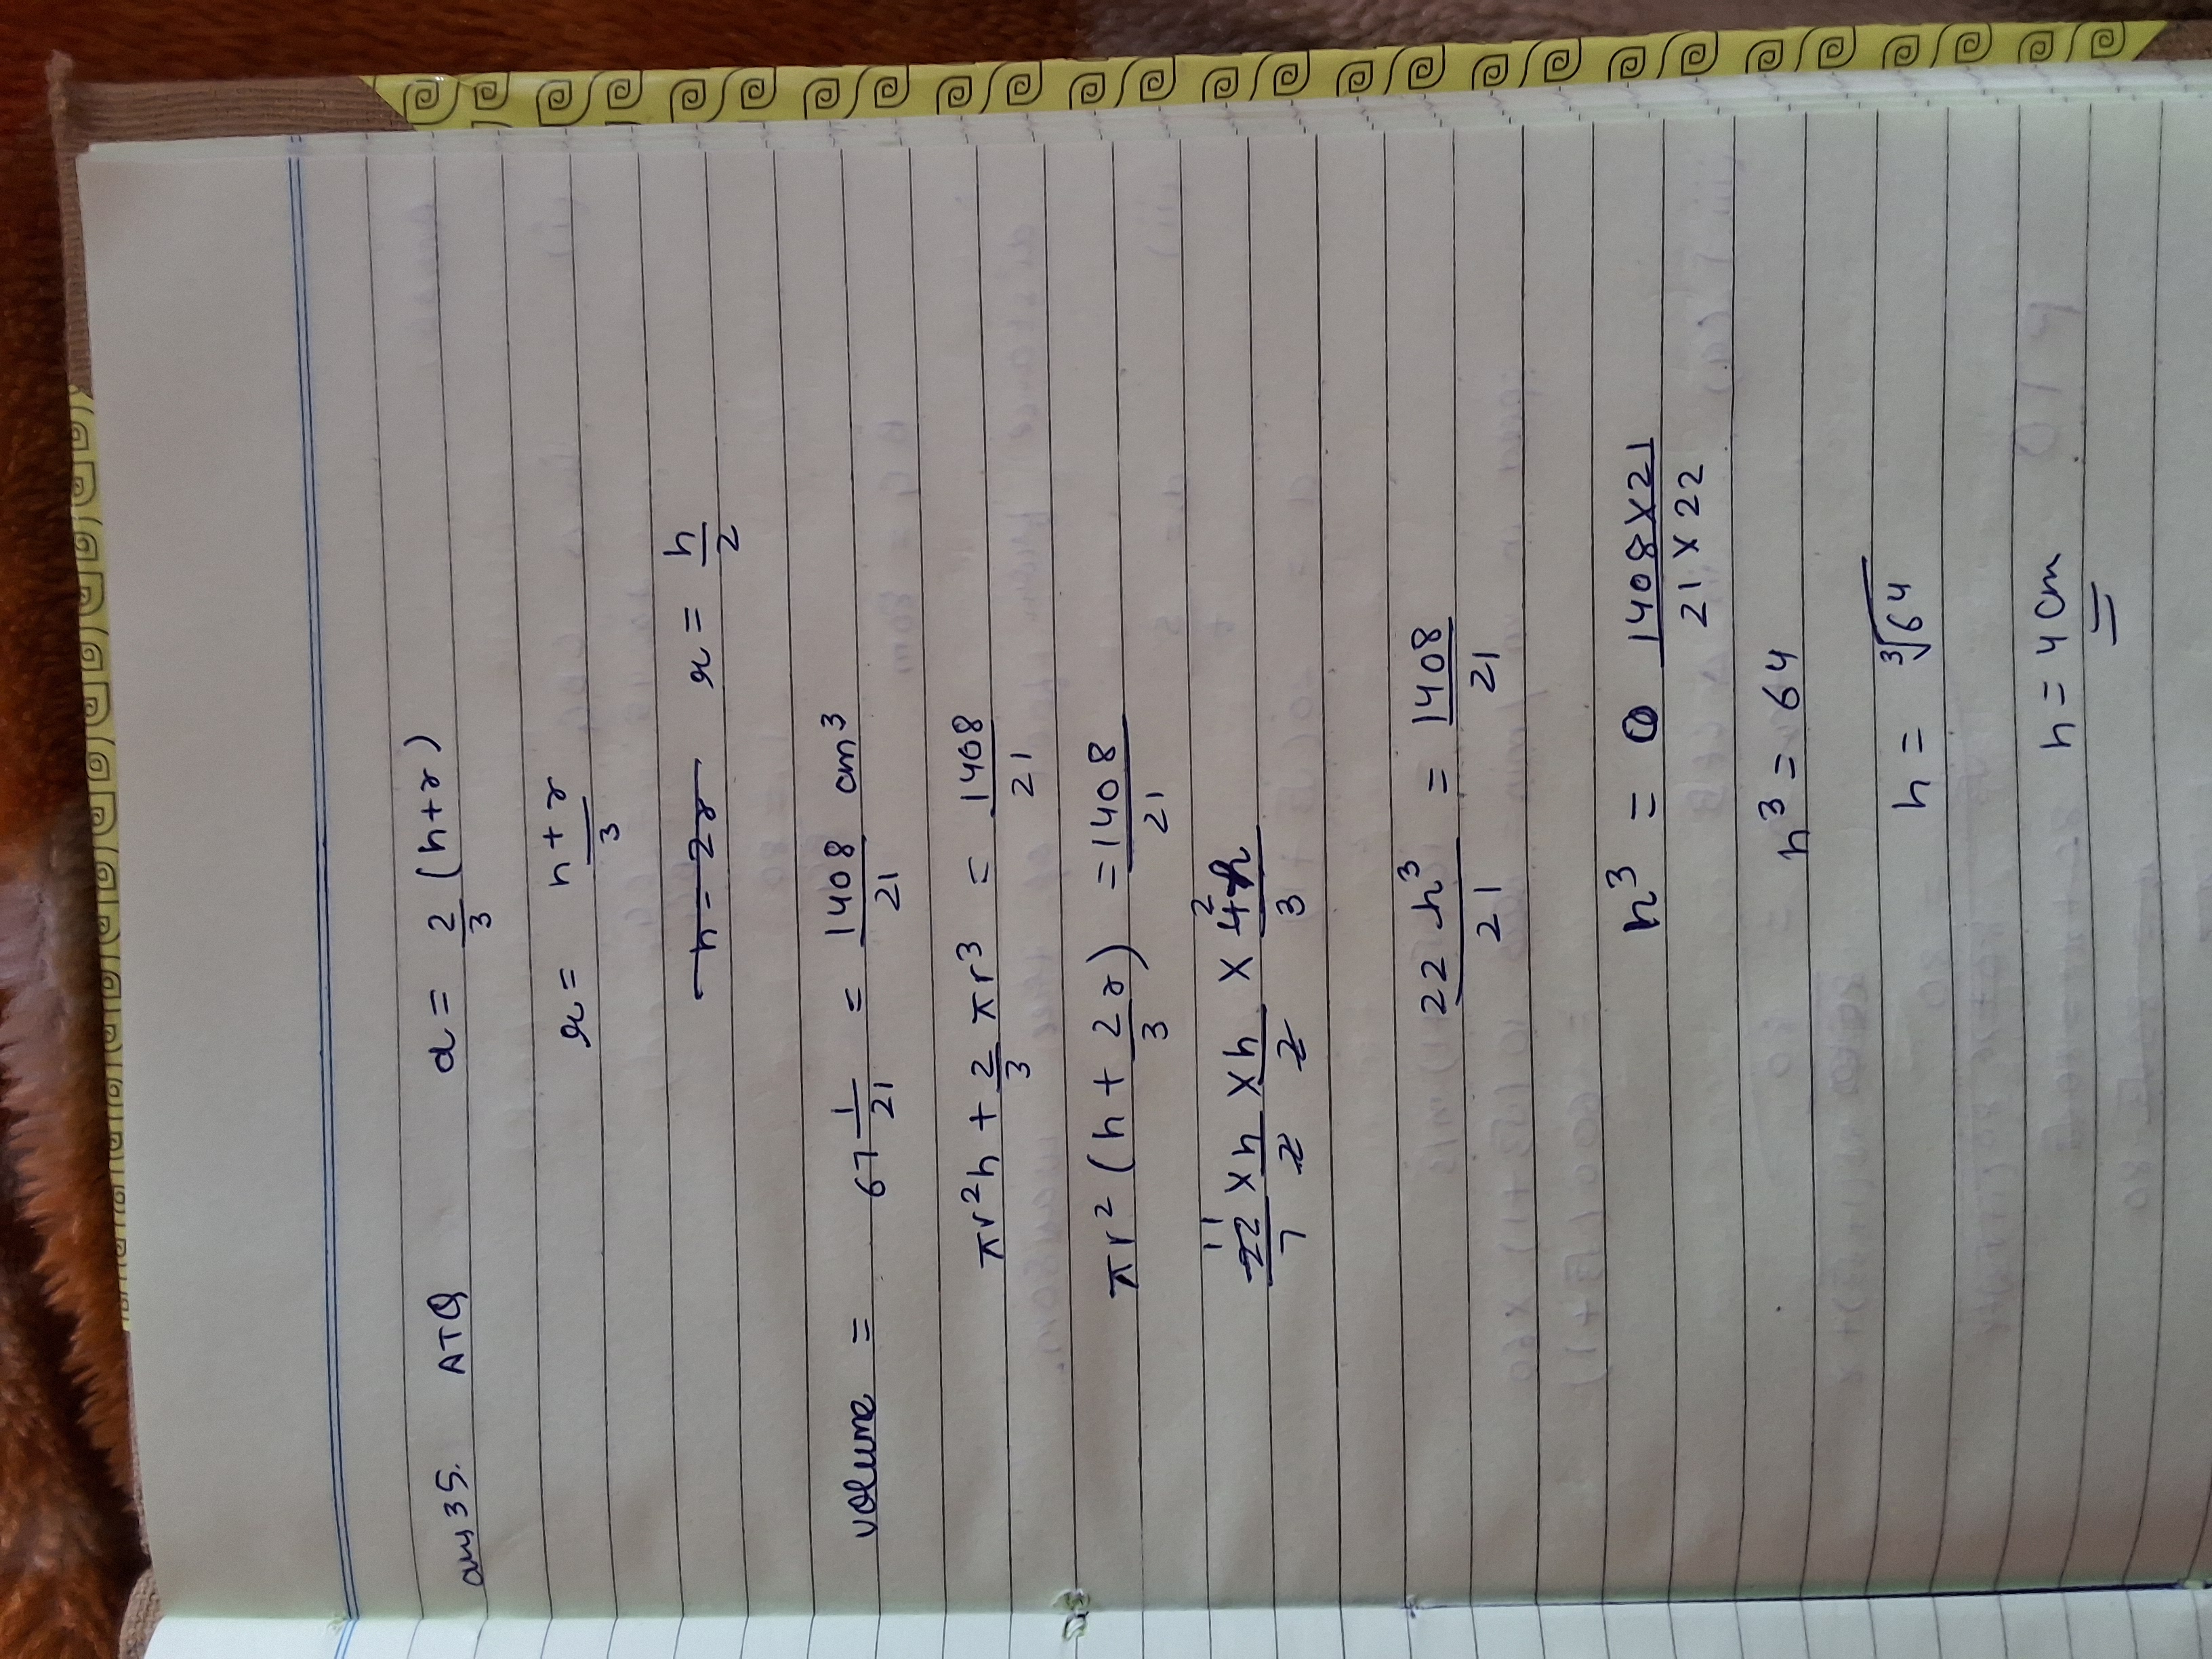 ans 35. ATQ d = 2/3 (h+r)
r = h+r/3
h = 2r r = h/2
volume = 67 1/21 = 1408/21 cm³
πr²h + 2/3 πr³ = 1408/21
πr² (h + 2/3 r) = 1408/21
11 2
22/7 × h/2 × h/2 × 4h/3
22h³/21 = 1408/21
h³ = 1408×21/21×22
h³ = 64
h = ∛64
h = 4cm